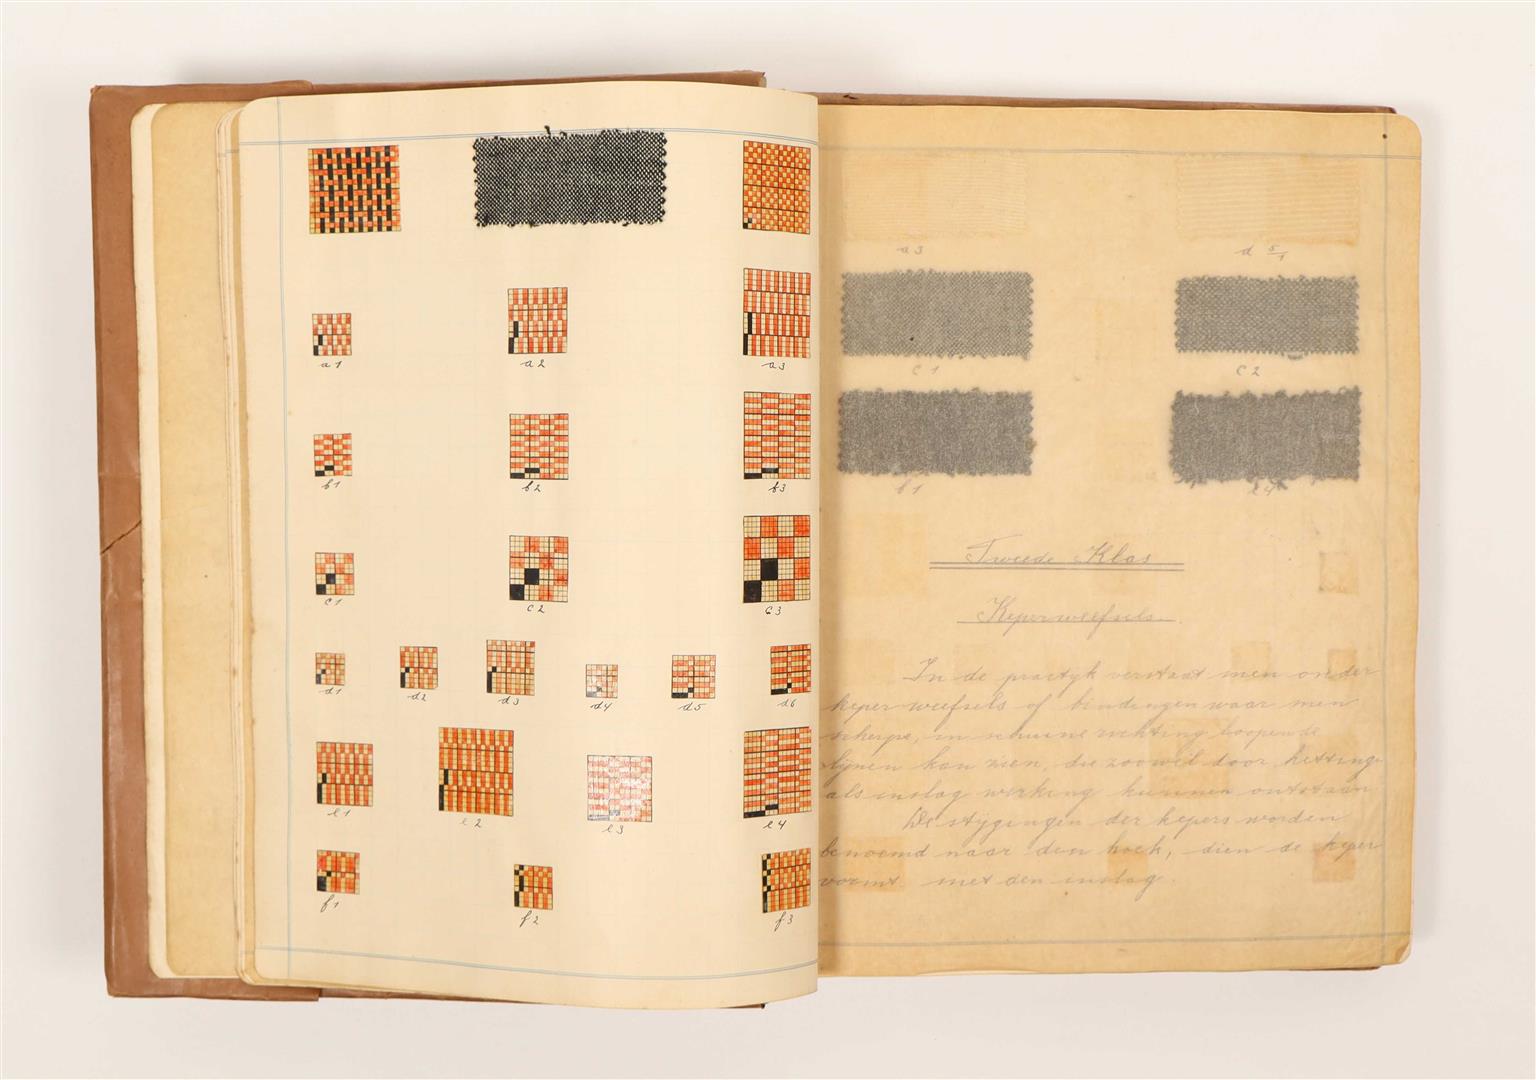 a1 a2 a3
b1 b2 b3
c1 c2 c3
d1 d2 d3 d4 d5 d6
e1 e2 e3 e4
f1 f2 f3
a3 d 5/1
c1 c2
b1 e4
Tweede Klas
Keperweefsels.
In de practyk verstaat men onder
keperweefsels of bindingen waar men
scherpe, in schuine richting loopende
lijnen kan zien, die zoowel door ketting-
als inslag werking kunnen ontstaan
De stijgingen der kepers worden
benoemd naar den hoek, dien de keper
vormt met den inslag.